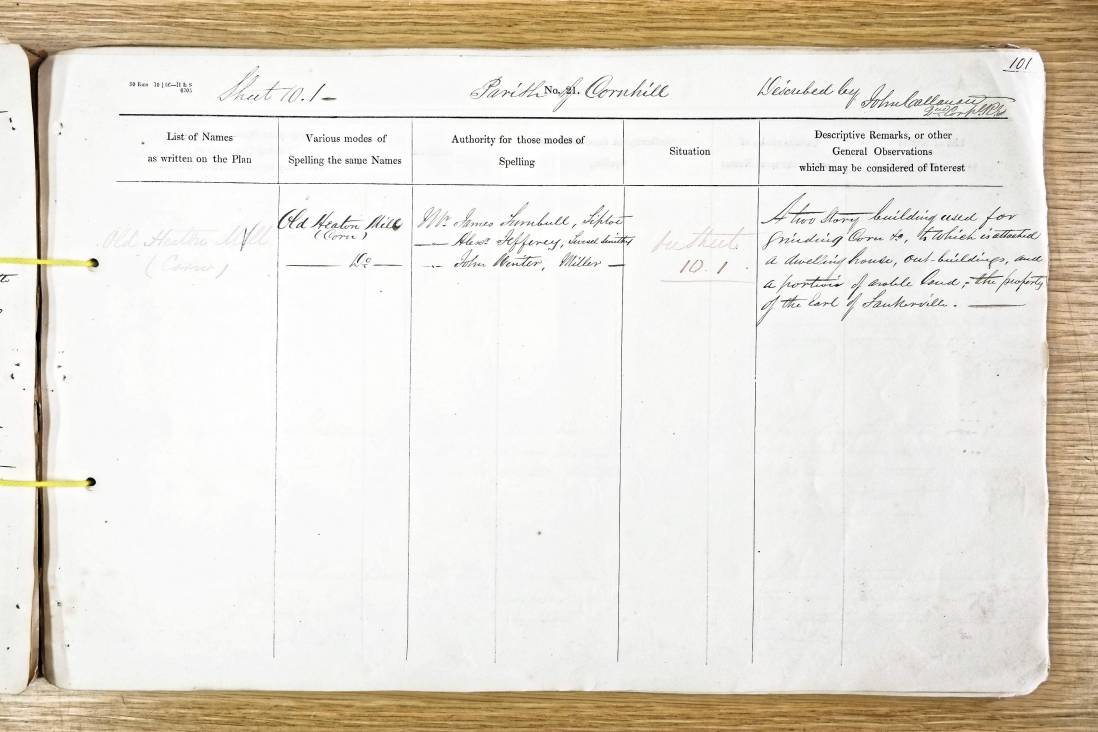 101
Sheet 10.1 -
Parish No. 21. of Cornhill
Described by John Callanan
2nd Corpl R.E.
List of Names
as written on the Plan
Various modes of
Spelling the same Names
Authority for those modes of
Spelling
Situation
Descriptive Remarks, or other
General Observations
which may be considered of Interest
Old Heaton Mill
(Corn)
Old Heaton Mill
(Corn)
Do
Mr. James Turnbull,
Alexr. Jefferey,
John Winter, Miller
Sheet
10.1.
A two Story building used for
grinding Corn &c, to which is attached
a dweling house, out-buildings, and
a portion of arable Land, - the property
of the Earl of Tankerville.